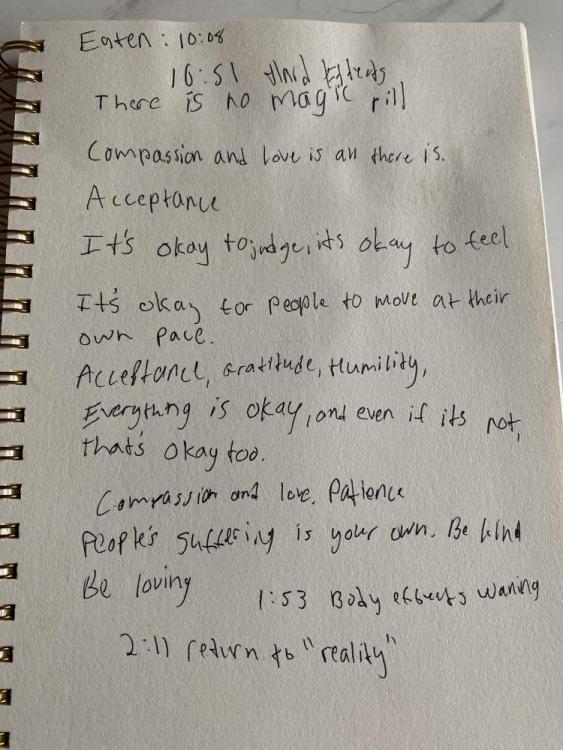 Eaten: 10:08
10:51 Mind Effects
There is no magic pill
Compassion and love is all there is.
Acceptance
It's okay to judge, its okay to feel
It's okay for people to move at their
own pace.
Acceptance, Gratitude, Humility,
Everything is okay, and even if its not,
that's okay too.
Compassion and love. Patience
People's suffering is your own. Be kind
Be loving
1:53 Body effects waning
2:11 return to "reality"